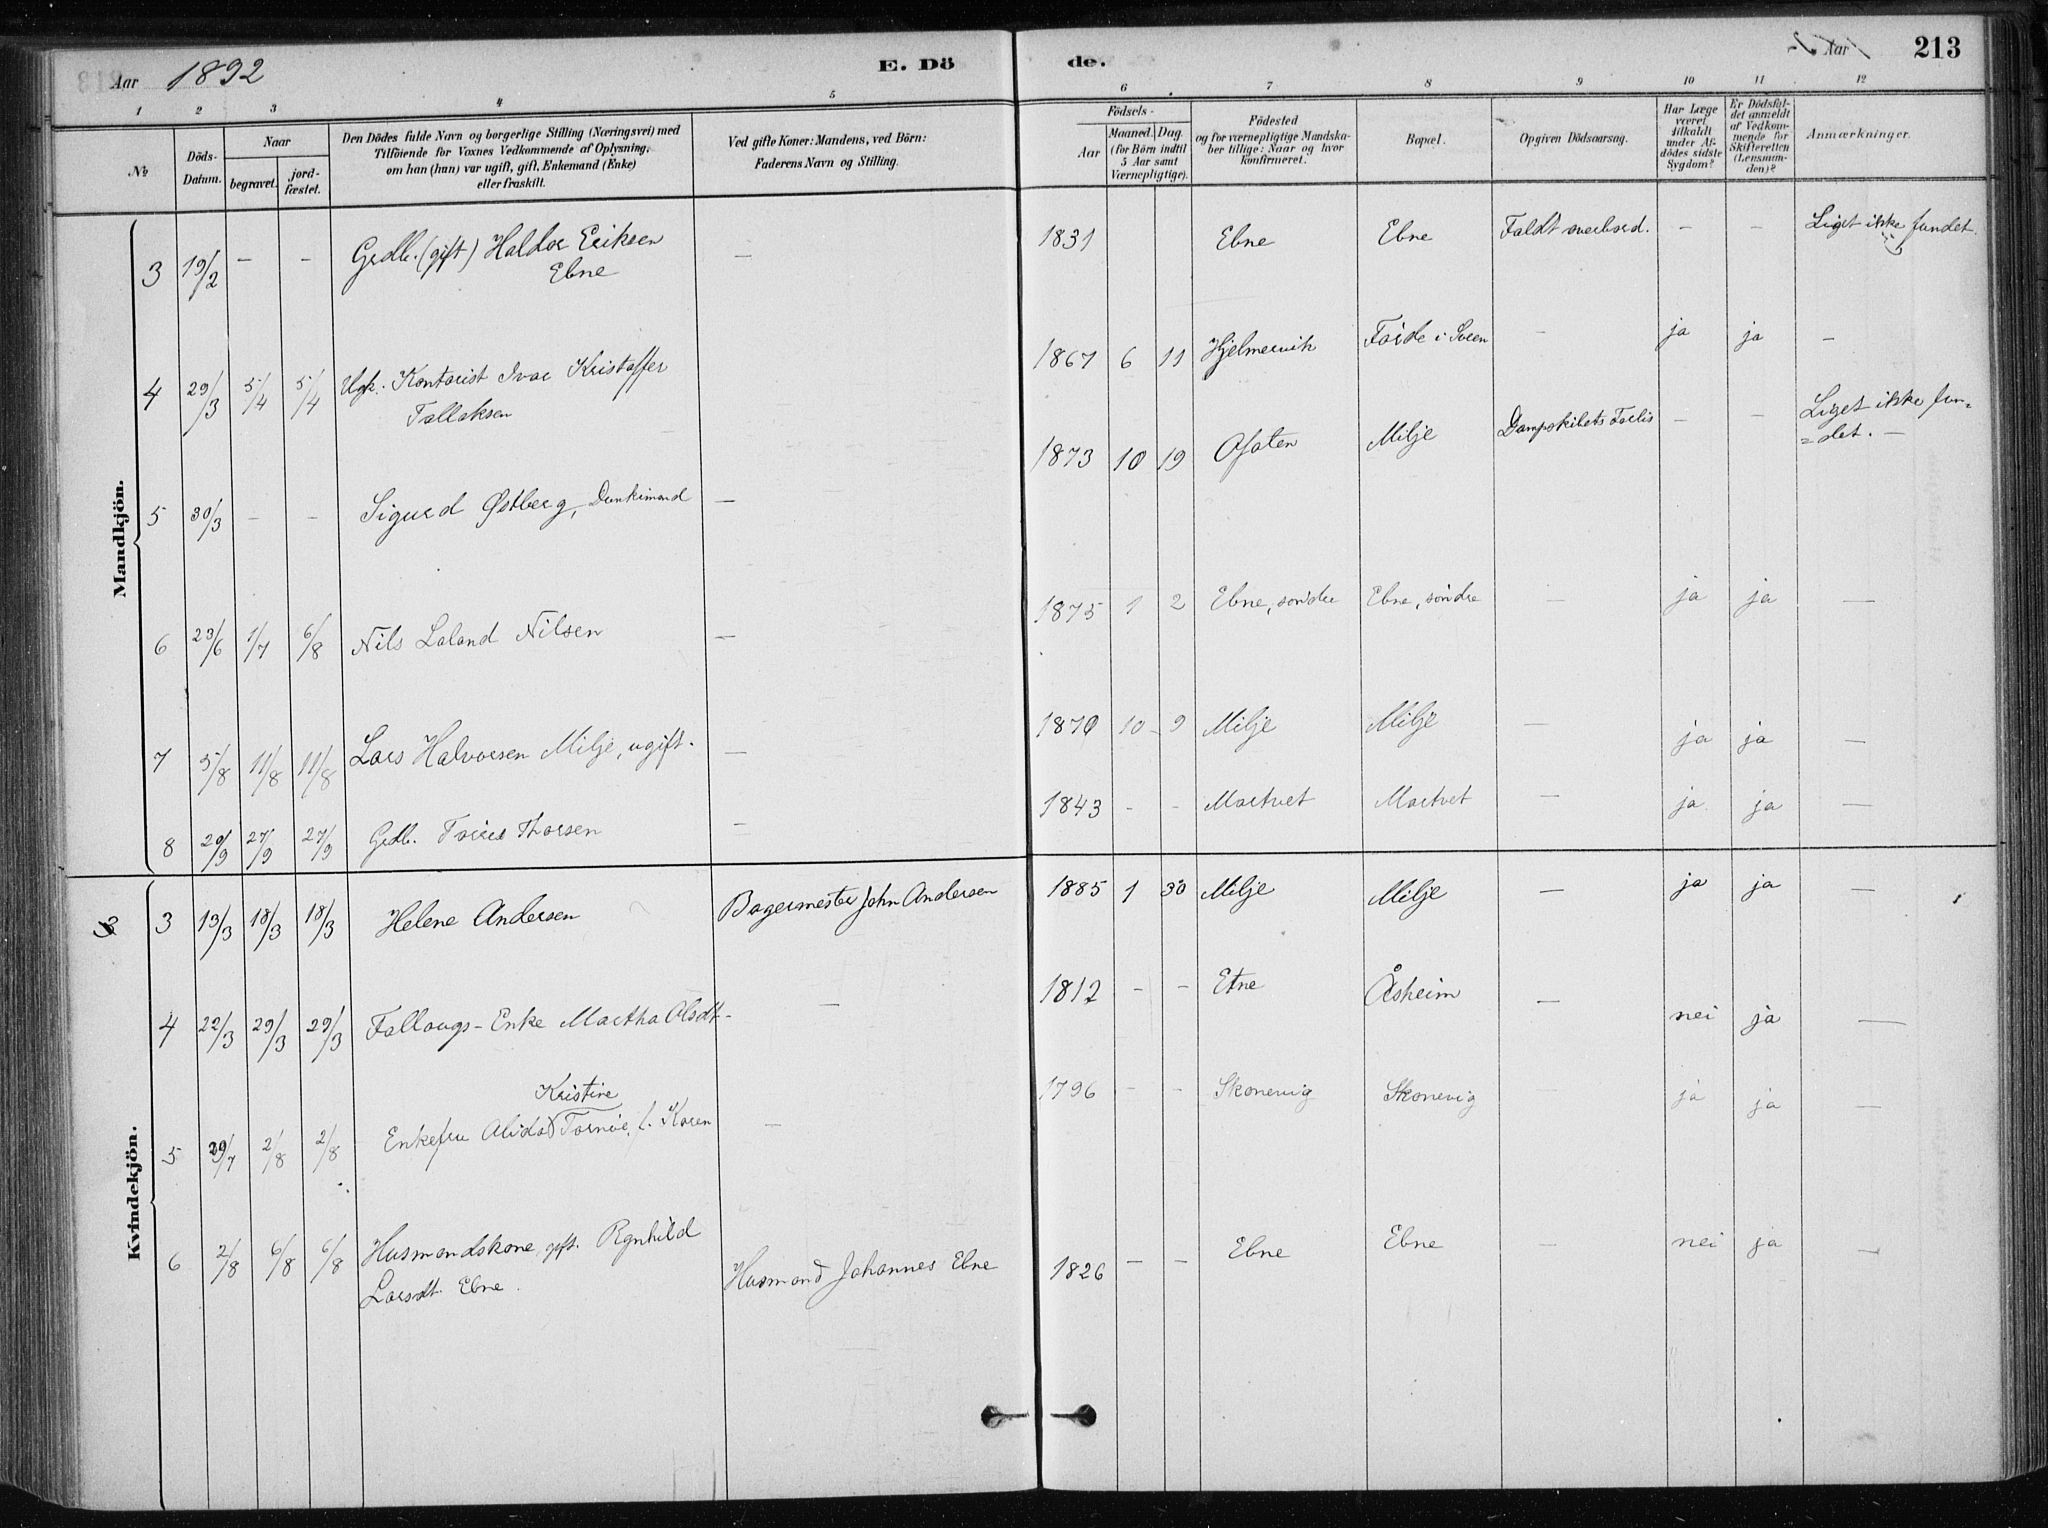 Aar 1892 E. Dö de. Aar 213
1 2 3 4 5 6 7 8 9 10 11 12
№
Döds-Datum.
Naar
begravet.
jord-fæstet.
Den Dödes fulde Navn og borgerlige Stilling (Næringsvei) med
Tilföiende for Voxnes Vedkommende af Oplysning,
om han (hun) var ugift, gift, Enkemand (Enke)
eller fraskilt.
Ved gifte Koner: Mandens, ved Börn:
Faderens Navn og Stilling.
Födsels-
Aar
Maaned. Dag.
(for Börn indtil
5 Aar samt
Værnepligtige).
Födested
og for værnepligtige Mandska-
ber tillige: Naar og hvor
konfirmeret.
Bopæl.
Opgiven Dödsaarsag.
Har Læge
været
tilkaldt
under Af-
dödes sidste
Sygdom?
Er Dödsfal-
det anmeldt
af Vedkom-
mende for
Skifteretten
(Lensman-
den)?
Anmærkninger.
Mandkjön.
3 19/2 – – Grdb. (gift) Haldor Eriksen – 1831 Ebne Ebne Faldt overbord. – – Liget ikke fundet.
Ebne
4 29/3 5/4 5/4 Ugk. Kontorist Ivar Kristoffer 1867 6 11 Hjelmervik Förde i Sveen – ja ja –
Tollaksen
5 30/3 – – Sigurd Østberg, Dunkimand – 1873 10 19 Ofoten Milje Dampskibets Forlis – – Liget ikke fun=
=det. –
6 23/6 1/7 6/8 Nils Laland Nilsen – 1875 1 2 Ebne, söndre Ebne, söndre – ja ja –
7 5/8 11/8 11/8 Lars Halvorsen Milje, ugift. – 1870 10 9 Milje Milje – ja ja –
8 20/9 27/9 27/9 Grdb. Torres Thorsen – 1843 – – Mortvet Mortvet – ja ja –
Kvindekjön.
3 3 13/3 18/3 18/3 Helene Andersen Bagermester John Andersen 1885 1 30 Milje Milje – ja ja –
4 22/3 29/3 29/3 Fallougs-Enke Martha Olsdt – 1812 – – Etne Åsheim – nei ja –
Kristine
5 29/7 2/8 2/8 Enkefru Alida Tornöe, f. Koren – 1796 – – Skonevig Skonevig – ja ja –
6 2/8 6/8 6/8 Husmandskone, gift. Rgnhild Husmand Johannes Ebne 1826 – – Ebne Ebne – nei ja –
Larsdt. Ebne.